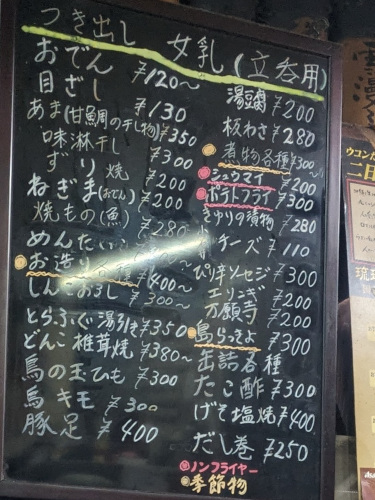 つき出し 女乳(立呑用)
おでん ¥120〜
目ざし ¥130
あま(甘鯛の干し物) ¥350
味淋干し ¥300
ずり焼 ¥200
ねぎ手(おでん) ¥200
焼もの(魚) ¥280
めんたいこ
お造り ¥400〜
しんこおろし ¥300〜
とらふぐ湯引き ¥350
どんこ椎茸焼 ¥380〜
鳥の玉ひも ¥300
鳥キモ ¥300
豚足 ¥400
湯腐 ¥200
板わさ ¥280
煮物各種 ¥300〜
シュウマイ ¥200
ポテトフライ ¥300
きゅりの漬物 ¥280
チーズ ¥110
ぴり辛ソーセジ ¥300
エリンギ ¥200
万願寺 ¥200
島らっきょ ¥300
缶詰各種
たこ酢 ¥300
げそ塩焼 ¥400
だし巻 ¥250
ノンフライヤー
季節物
ウコン
二日
琉球